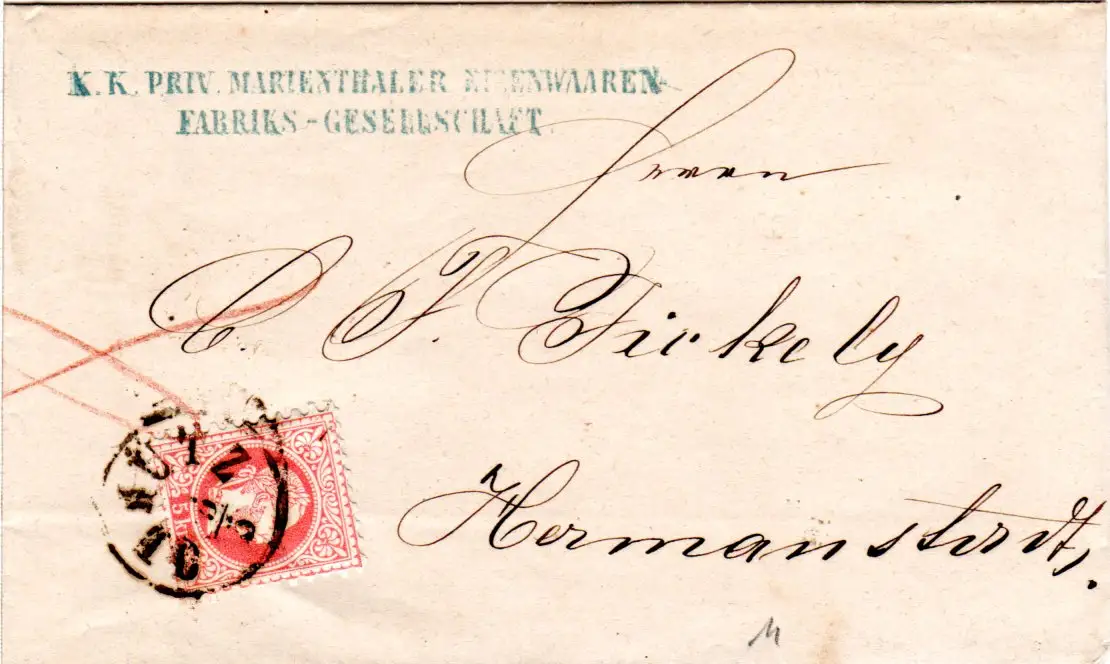 K. K. PRIV. MARIENTHALER EISENWAAREN-
FABRIKS-GESELLSCHAFT.
Herrn
C. F. Jickely
Hermanstadt,
OLMÜTZ
5 kr